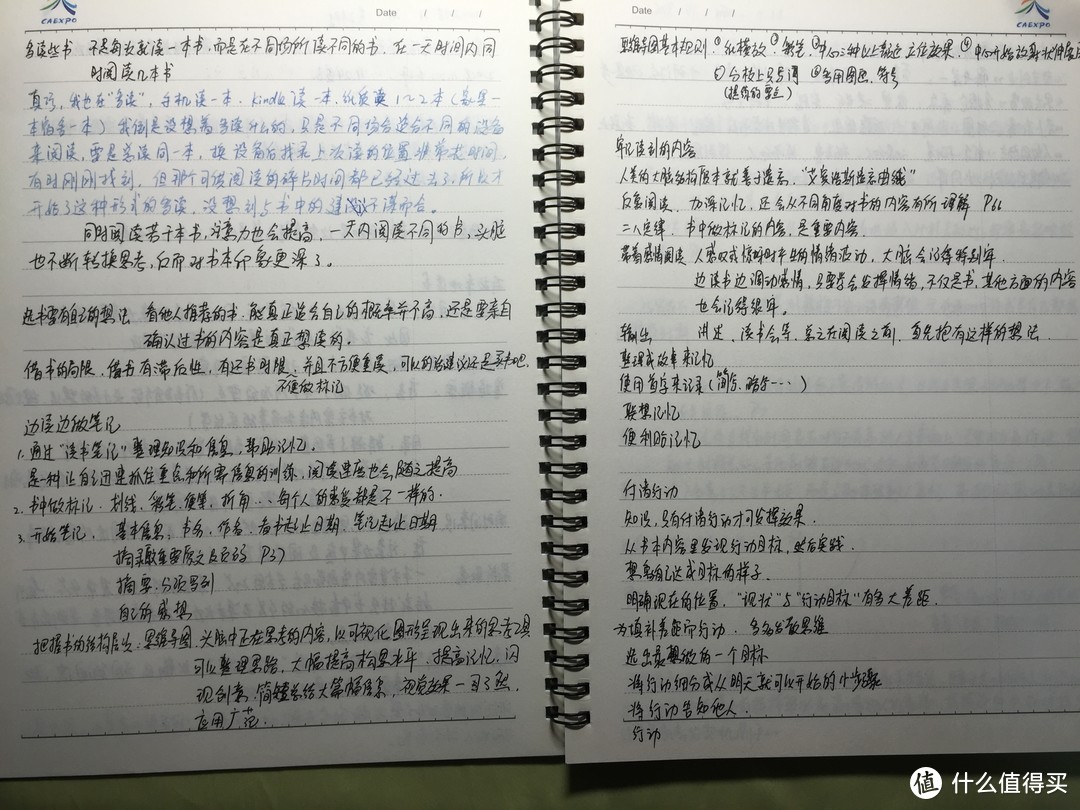 CAEXPO
Date / / /
多读些书 不是每次就读一本书,而是在不同场所读不同的书,在一天时间内同
时阅读几本书
真巧,我也在"多读",手机读一本,kindle读一本,纸质读1~2本(家里一
本宿舍一本)我倒是没想着多读什么的,只是不同场合适合不同的设备
来阅读,要是总读同一本,换设备后找寻上次读的位置非常花时间,
有时刚刚找到,但那个可供阅读的碎片时间都已经过去了.所以才
开始了这种形式的多读,没想到与书中的建议不谋而合。
同时阅读若干本书,注意力也会提高,一天内阅读不同的书,头脑
也不断转换思考,反而对书本印象更深了。
选书要有自己的想法 看他人推荐的书,能真正适合自己的概率并不高,还是要亲自
确认过书的内容是真正想读的.
借书的局限,借书有滞后性,有还书期限,并且不方便重读,可以的话建议还是买来吧.
不便做标记
边读边做笔记
1. 通过"读书笔记"整理知识和信息,帮助记忆.
是一种让自己迅速抓住重点和所需信息的训练,阅读速度也会随之提高
2. 书中做标记. 划线、彩笔、便签、折角...每个人的感受都是不一样的.
3. 开始笔记. 基本信息:书名、作者、看书起止日期、笔记起止日期
摘录重要原文及页码 P37
摘要:分项罗列
自己的感想
把握书的结构层次,思维导图,头脑中正在思考的内容,以可视化图形呈现出来的思考工具
可以整理思路,大幅提高构思水平,提高记忆,闪
现创意,简短总结大篇幅信息,视觉效果一目了然.
应用广范.
CAEXPO
Date / / /
思维导图基本规则 ①纸横放 ②彩笔 ③中心三种以上颜色 立体效果 ④中心开始放射状伸展
分枝上只写词 多用图画、符号
(提炼的要点)
牢记读到的内容
人类的大脑结构原本就善于遗忘,"艾宾浩斯遗忘曲线"
反复阅读,加深记忆,还会从不同角度对书的内容有所理解 P66
二八定律,书中做标记的内容,是重要内容.
带着感情阅读 人感叹或惊呼时产生的情绪波动,大脑会记得特别牢
边读书边调动感情,只要学会发挥情绪,不仅是书,其他方面的内容
也会记得很牢.
输出 讲述、读书会等,总之在阅读之前,首先抱有这样的想法.
整理成故事来记忆
使用首字来记录(简写、略写...)
联想记忆
便利贴记忆
付诸行动
知识,只有付诸行动才可发挥效果.
从书本内容里发现行动目标,然后实践.
想象自己达成目标的样子.
明确现在的位置,"现状"与"行动目标"有多大差距.
为填补差距而行动,多多发散思维
选出最想做的一个目标
将行动细分成从明天就可以开始的小步骤
将行动告知他人.
行动
值 什么值得买